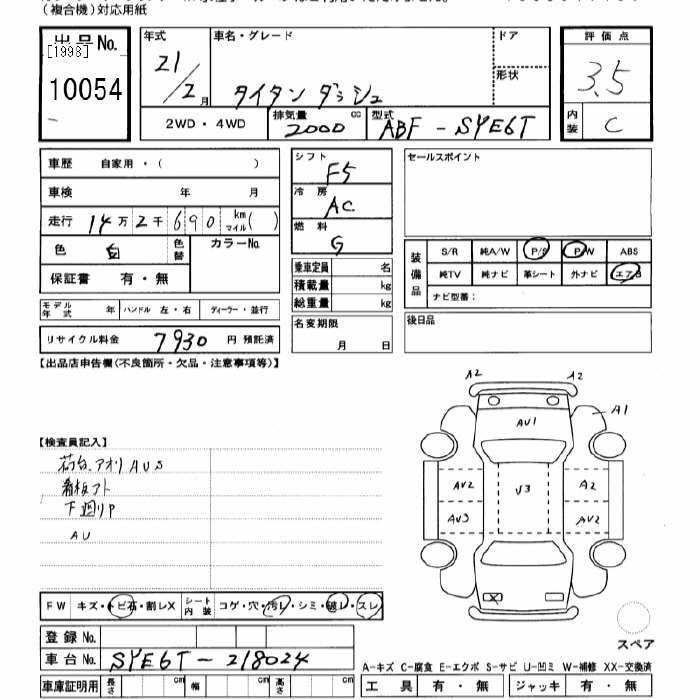 (複合機)対応用紙
出品No.
[1998]
10054
年式
21/2月
車名・グレード
タイタン ダッシュ
ドア
形状
評価点
3.5
内装
C
2WD・4WD
排気量
2000 cc
型式
ABF-SYE6T
車歴 自家用・( )
車検 年 月
走行 14万2千690 km マイル( )
色 白 色替 カラーNo.
保証書 有・無
モデル年式 年 ハンドル 左・右 ディーラー・並行
リサイクル料金 7930 円 預託済
シフト
F5
冷房
AC
燃料
G
乗車定員 名
積載量 kg
総重量 kg
名変期限
月 日
セールスポイント
装備品
S/R 純A/W P/S P/W ABS
純TV 純ナビ 革シート 外ナビ エアB
ナビ型番:
後日品
【出品店申告欄(不良箇所・欠品・注意事項等)】
【検査員記入】
荷台、アオリ AUS
看板アト
下廻りP
AU
A2 A2
A1
AU1
AU2 U3 A2
AU3 AU2
X
スペア
FW キズ・トビ石・割レX シート内装 コゲ・穴・汚レ・シミ・破レ・スレ
登録No.
車台No. SYE6T-218024
車庫証明用 長さ cm 幅 cm 高さ cm
A-キズ C-腐食 E-エクボ S-サビ U-凹ミ W-補修 XX-交換済
工具 有・無 ジャッキ 有・無